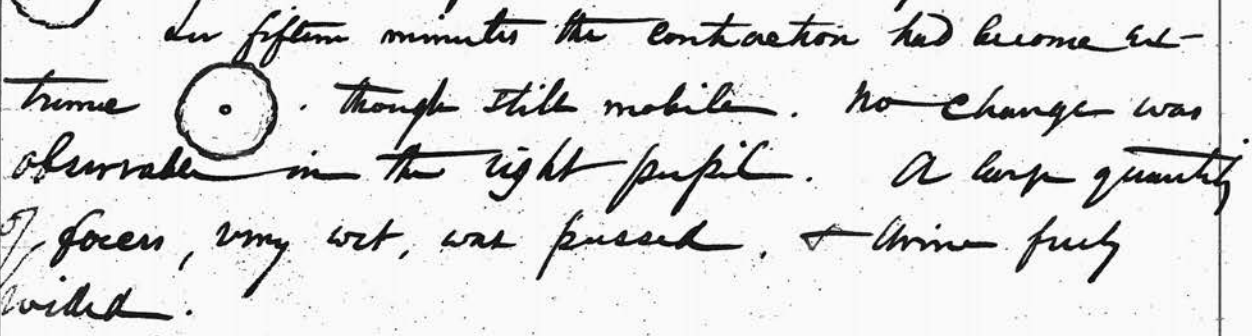 In fifteen minutes the contraction had become ex-
treme . though still mobile. No change was
observable in the right pupil. A large quantity
of foeces, very wet, was passed, & urine freely
voided.